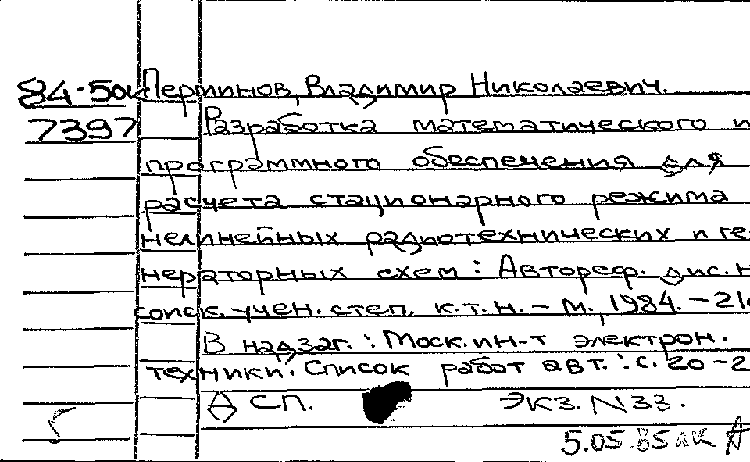 84-5ок Перминов, Владимир Николаевич.
7397 Разработка математического и
программного обеспечения для
расчета стационарного режима
нелинейных радиотехнических и ге-
нераторных схем : Автореф. дис. н
соиск. учен. степ. к.т.н. - М., 1984. - 21
В надзаг. : Моск. ин-т электрон.
техники. Список работ авт. : с. 20-2
СП. ЭКЗ. N 33.
5.05.85